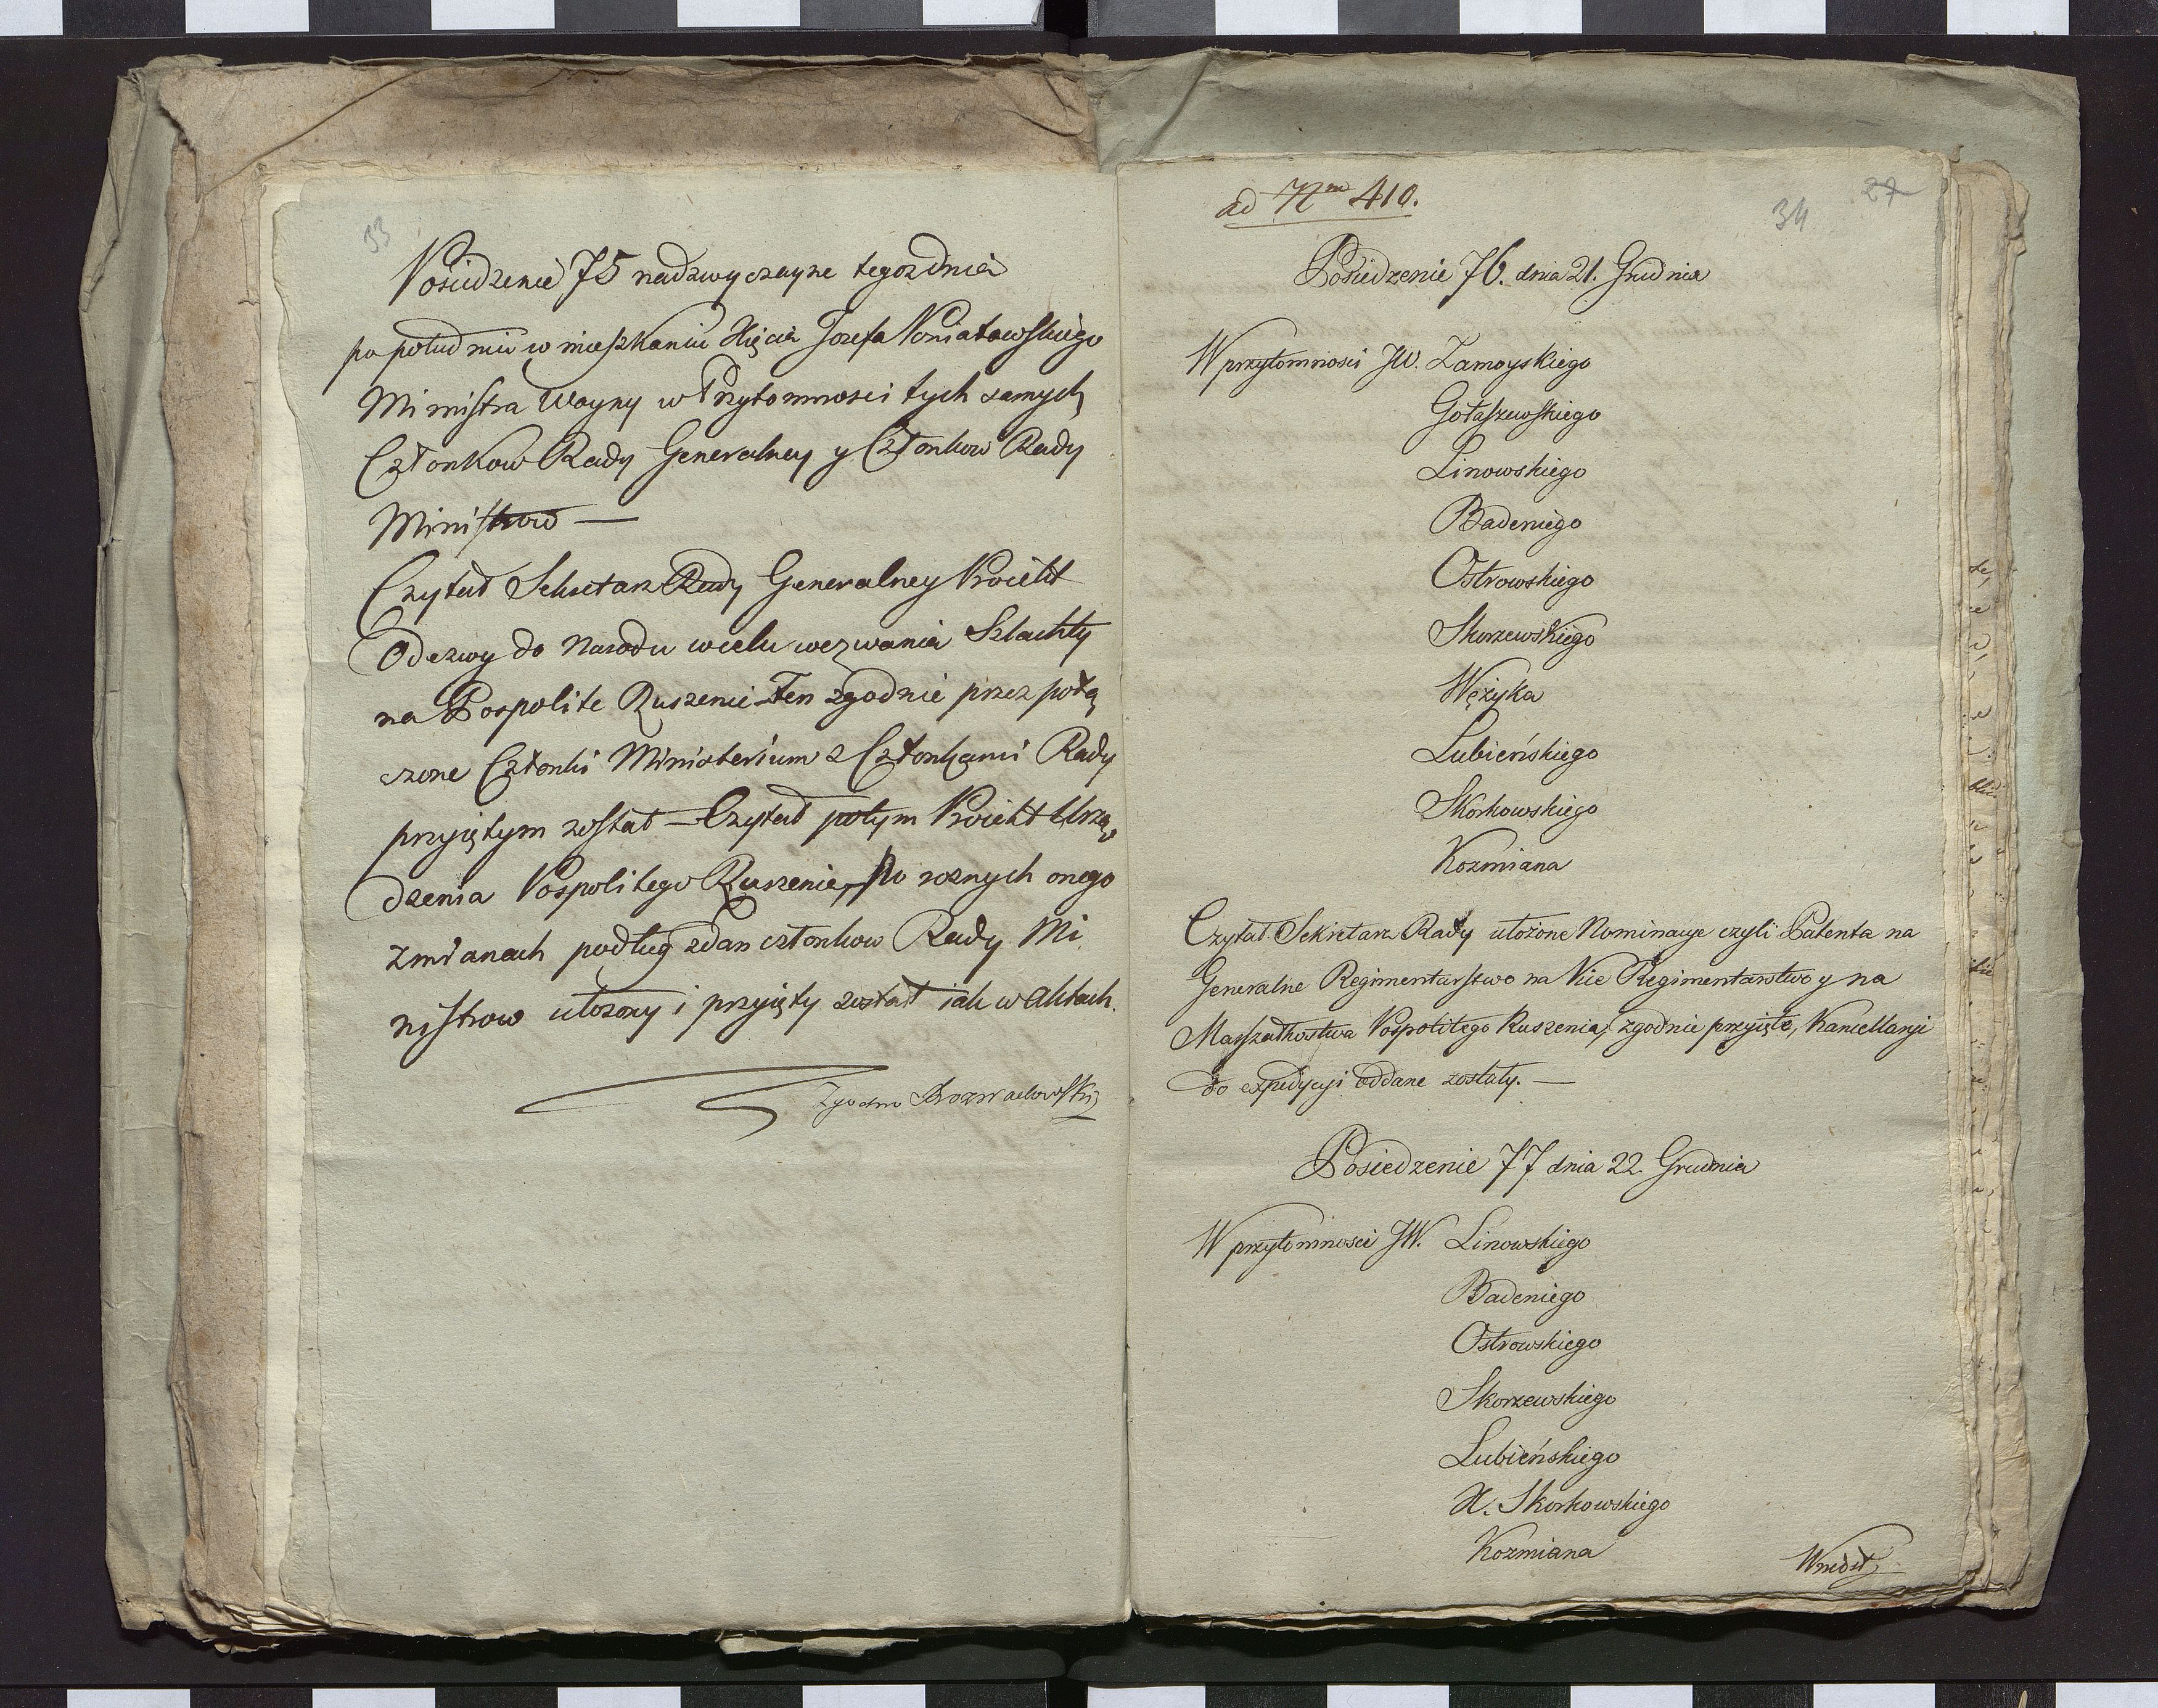 33
Posiedzenie 75 nadzwyczayne tegoz dnia
po południu w mieszkaniu Xięcia Jozefa Poniatowskiego
Ministra Woyny w Przytomnosci tych samych
Członkow Rady Generalney y Członkow Rady
Ministrow —
Czytał Sekretarz Rady Generalney Proiekt
Odezwy do Narodu wcelu wezwania Szlachty
na Pospolite Ruszenie – Ten zgodnie przez połą
czone Członki Ministerium z Członkami Rady
przyiętym został — Czytał potym Proiekt Urzą
dzenia Pospolitego Ruszenia, Po roznych onego
Zmianach podług zdan członkow Rady Mi
nistrow ułozony i przyięty został iak w Aktach.
Zgodno Bozwadowski
ad Nrm 410.
34
27
Posiedzenie 76. dnia 21. Grudnia
W przytomnosci JW. Zamoyskiego
Gołaszewskiego
Linowskiego
Badeniego
Ostrowskiego
Skorzewskiego
Wężyka
Lubieńskiego
Skorkowskiego
Kozmiana
Czytał Sekretarz Rady ułożone Nominacye czyli Patenta na
Generalne Regimentarstwo na Vice Regimentarstwo y na
Marszałkostwa Pospolitego Ruszenia, zgodnie przyięte, Kancellaryi
do expedycyi oddane zostały. —
Posiedzenie 77 dnia 22. Grudnia
W przytomnosci JW. Linowskiego
Badeniego
Ostrowskiego
Skorzewskiego
Lubieńskiego
X. Skorkowskiego
Kozmiana